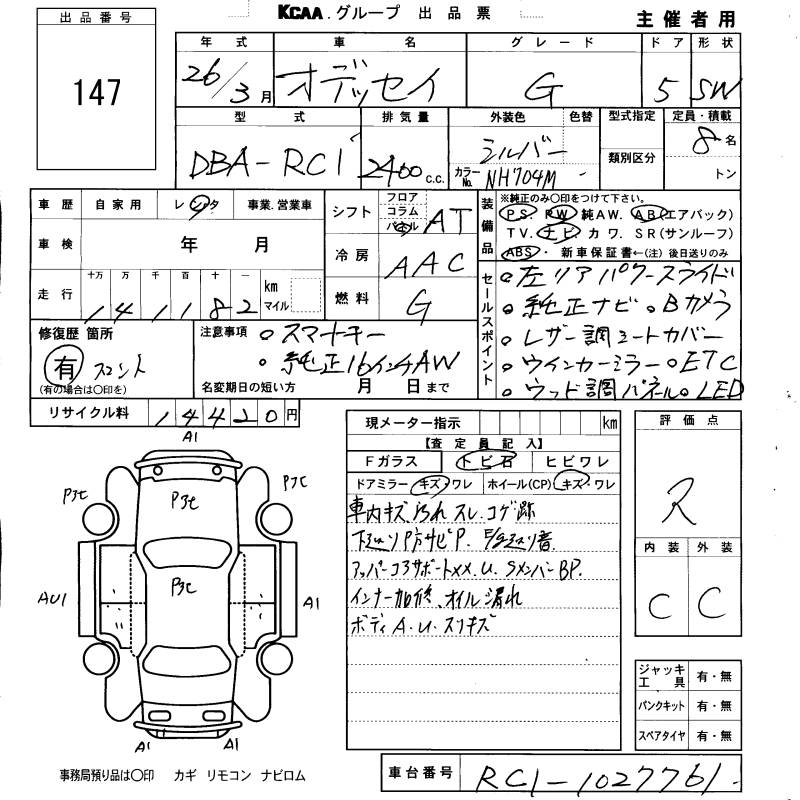 出品番号
147
KCAA.グループ 出品票
主催者用
年式 車名 グレード ドア 形状
26/3月 オデッセイ G 5 SW
型式 排気量 外装色 色替 型式指定 定員・積載
DBA-RC1 2400c.c. シルバー 8名
カラーNo. NH704M -
類別区分 トン
車歴 自家用 レンタ 事業.営業車
車検 年 月
走行 十万 万 千 百 十 一
141182 km マイル
シフト フロア コラム パネル AT
冷房 AAC
燃料 G
装備品
※純正のみ〇印をつけて下さい。
PS. PW. 純AW. AB(エアバック)
TV. ナビ カワ. SR(サンルーフ)
ABS・ 新車保証書←(注) 後日送りのみ
セールスポイント
○左リアパワースライド
○純正ナビ ○Bカメラ
○レザー調シートカバー
○ウインカーミラー ○ETC
○ウッド調パネル ○LED
修復歴 箇所
有 フロント
(有の場合は〇印を)
注意事項 ○スマートキー
○純正16インチAW
名変期日の短い方 月 日まで
リサイクル料 14420円
現メーター指示 km
【査定員記入】
Fガラス トビ石 ヒビワレ
ドアミラー キズ・ワレ ホイール(CP) キズ・ワレ
車内キズ 汚れ スレ. コゲ跡
下廻り P防サビP.
アッパーコアサポートXX. U. SメンバーBP.
インナー加修、オイル漏れ
ボディA. U. スリキズ
評価点
R
内装 外装
C C
A1
P3C P3C P3C
P3C
AU1 A1
A1 A1
ジャッキ工具 有・無
パンクキット 有・無
スペアタイヤ 有・無
事務局預り品は〇印 カギ リモコン ナビロム
車台番号 RC1-1027761.